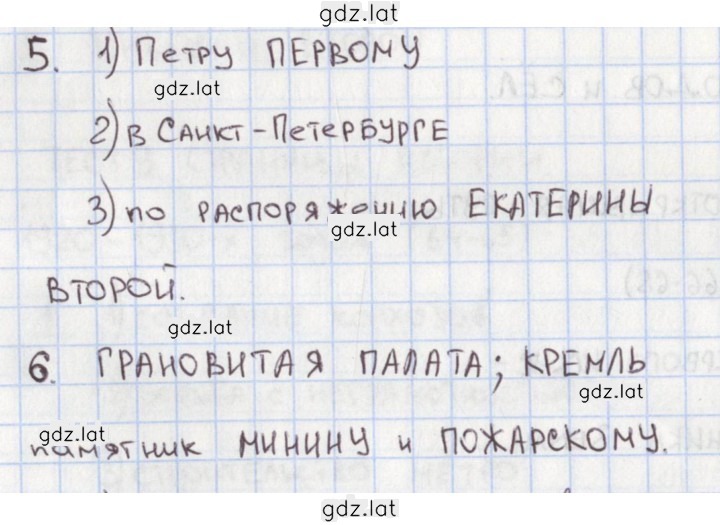 gdz.lat
5. 1) Петру ПЕРВОМУ
gdz.lat
2) в САНКТ-ПЕТЕРБУРГЕ
3) по РАСПОРЯЖЕНИЮ ЕКАТЕРИНЫ
gdz.lat
ВТОРОЙ.
gdz.lat
6. ГРАНОВИТАЯ ПАЛАТА; КРЕМЛЬ
gdz.lat
gdz.lat
памятник МИНИНУ и ПОЖАРСКОМУ.
gdz.lat